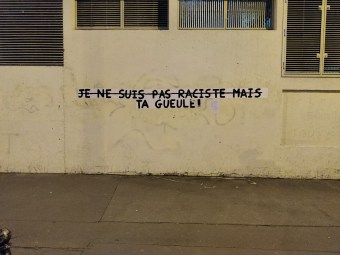 JE NE SUIS PAS RACISTE MAIS
TA GUEULE!